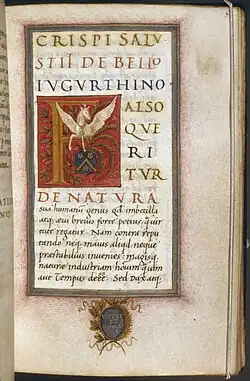 CRISPI SALV
STII DE BELLO
IVGVRTHINO
F ALSO
QVE
RI
TVR
DE NATVRA
sua humanū genus qđ imbecilla
atq; aeui breuis forte potius quā uir
tute regatur. Nam contra repu
tando neq; maius aliqđ neque
præstabilius inuenies: magisq;
naturæ industriam hominū quàm
aut tempus debē. Sed Dux atq;